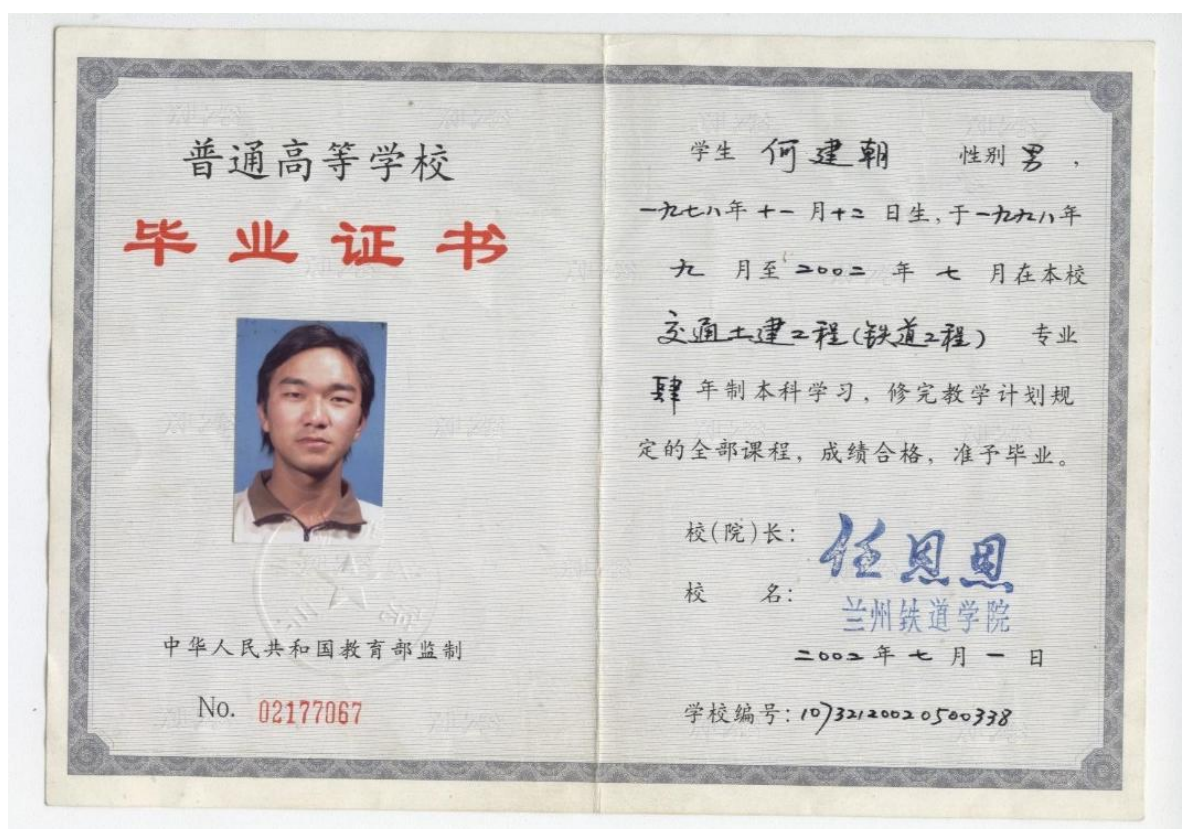 普通高等学校
毕业证书
中华人民共和国教育部监制
No. 02177067
学生 何建朝 性别 男,
一九七八年 十一 月 十二 日生,于 一九九八年
九 月至 二00二 年 七 月在本校
交通土建工程(铁道工程) 专业
肆 年制本科学习,修完教学计划规
定的全部课程,成绩合格,准予毕业。
校(院)长: 任恩恩
校 名: 兰州铁道学院
二00二 年 七 月 一 日
学校编号: 10732120020500338